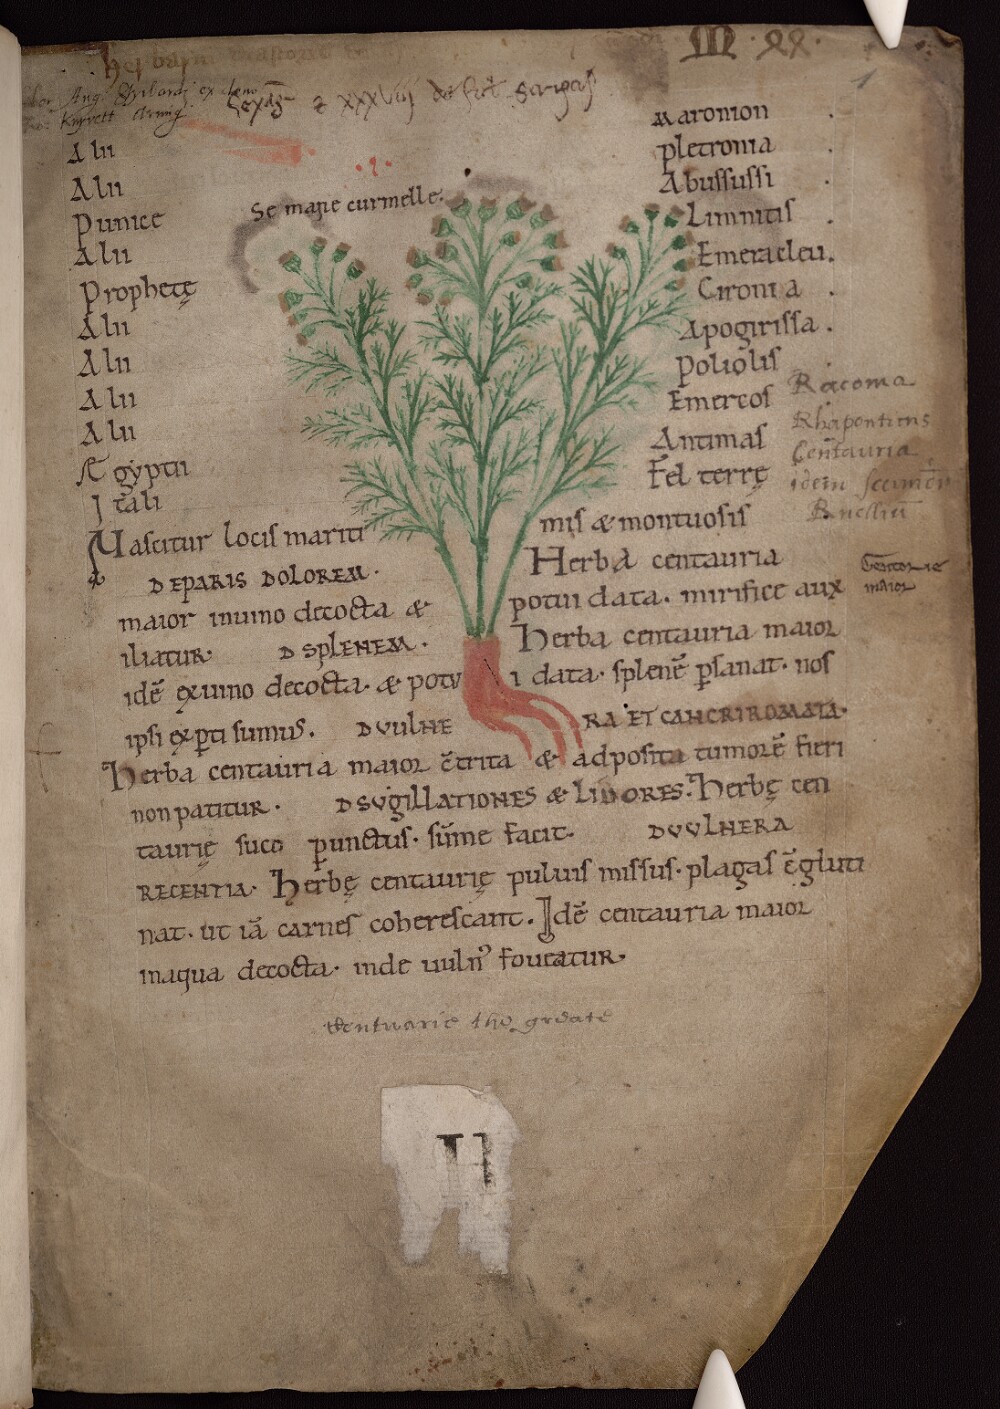 M. XX.
& xxxviij
Se mare curmelle.
Alii Maronion
Alii pletronia
Punice Abussussi
Alii Limnitis
Prophetę Emeracleu.
Alii Cironia
Alii Apogirissa.
Alii Poliolis
Alii Emercos
Ægyptii Antimas
Itali Fel terrę
Racoma
Rhaponticus
Centauria
idem secundū
Nascitur locis mariti mis & montuosis
DEPARIS DOLOREM. Herba centauria
maior inuino decocta & potui data. mirifice aux
iliatur. D SPLENEM. Herba centauria maior
idē exuino decocta. & potu i data. splenē psanat. nos
ipsi expti sumus. D VULNE RA ET CANCRIROMATA.
Herba centauria maior c̄trita & adposita tumorē fieri
non patitur. D SVGILLATIONES & LIVORES. Herbę cen
taurię suco punctus. sūme facit. DVVLNERA
RECENTIA. Herbę centaurię puluis missus. plagas c̄gluti
nat. ut iā carnes coherescant. Idē centauria maior
inaqua decocta. inde uuln foueatur.
Centorie
maior
Centuarie the greate